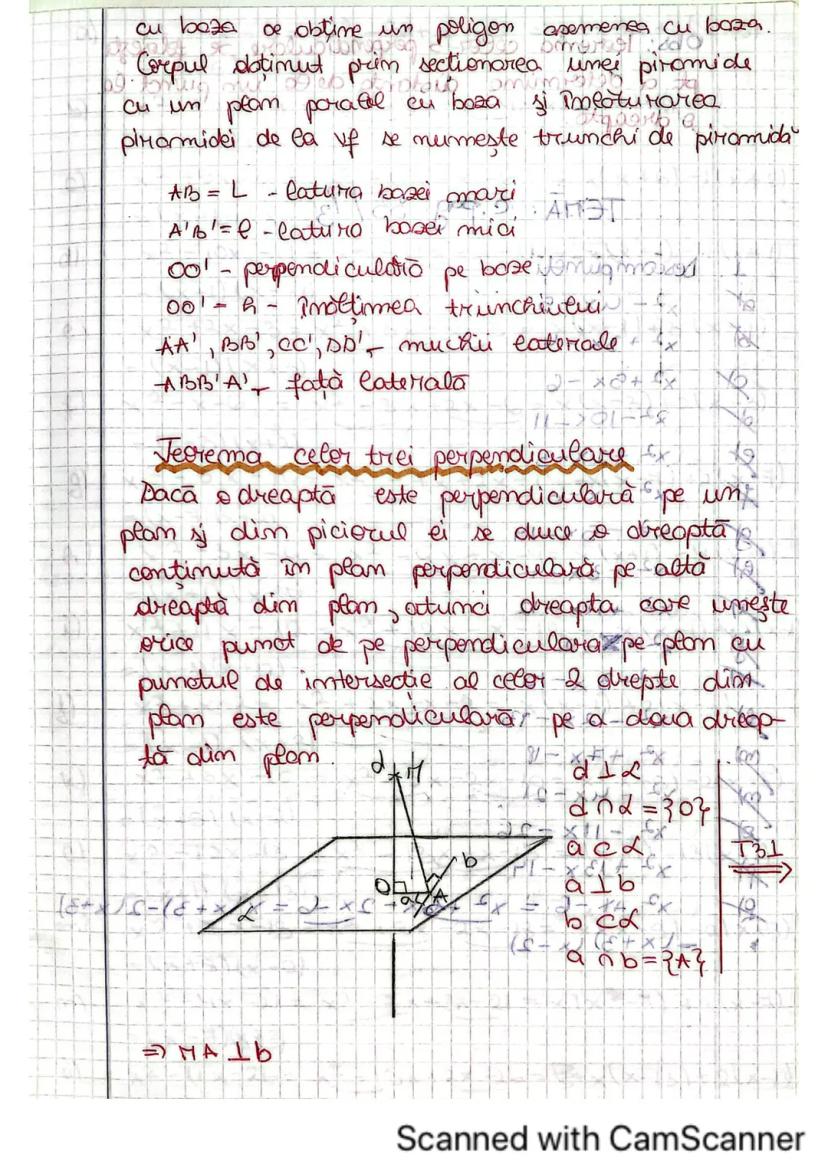 cu baza se obține un poligon asemenea cu baza.
Corpul obținut prin secționarea unei piramide
cu un plan paralel cu baza și înlăturarea
piramidei de la vf se numește trunchi de piramidă
AB = L - latura bazei mari
A'B' = l - latura bazei mici
OO' - perpendiculară pe baze
OO' = h - înălțimea trunchiului
AA', BB', CC', DD' - muchii laterale
ABB'A' - față laterală
Teorema celor trei perpendiculare
Dacă o dreaptă este perpendiculară pe un
plan și din piciorul ei se duce o dreaptă
conținută în plan perpendiculară pe altă
dreaptă din plan, atunci dreapta care unește
orice punct de pe perpendiculara pe plan cu
punctul de intersecție al celor 2 drepte din
plan este perpendiculară pe a doua dreap-
tă din plan.
d M
O a A b
α
d ⊥ α
d ∩ α = {O}
a ⊂ α
a ⊥ b
b ⊂ α
a ∩ b = {A}
T3⊥ ⇒
⇒ MA ⊥ b
Scanned with CamScanner